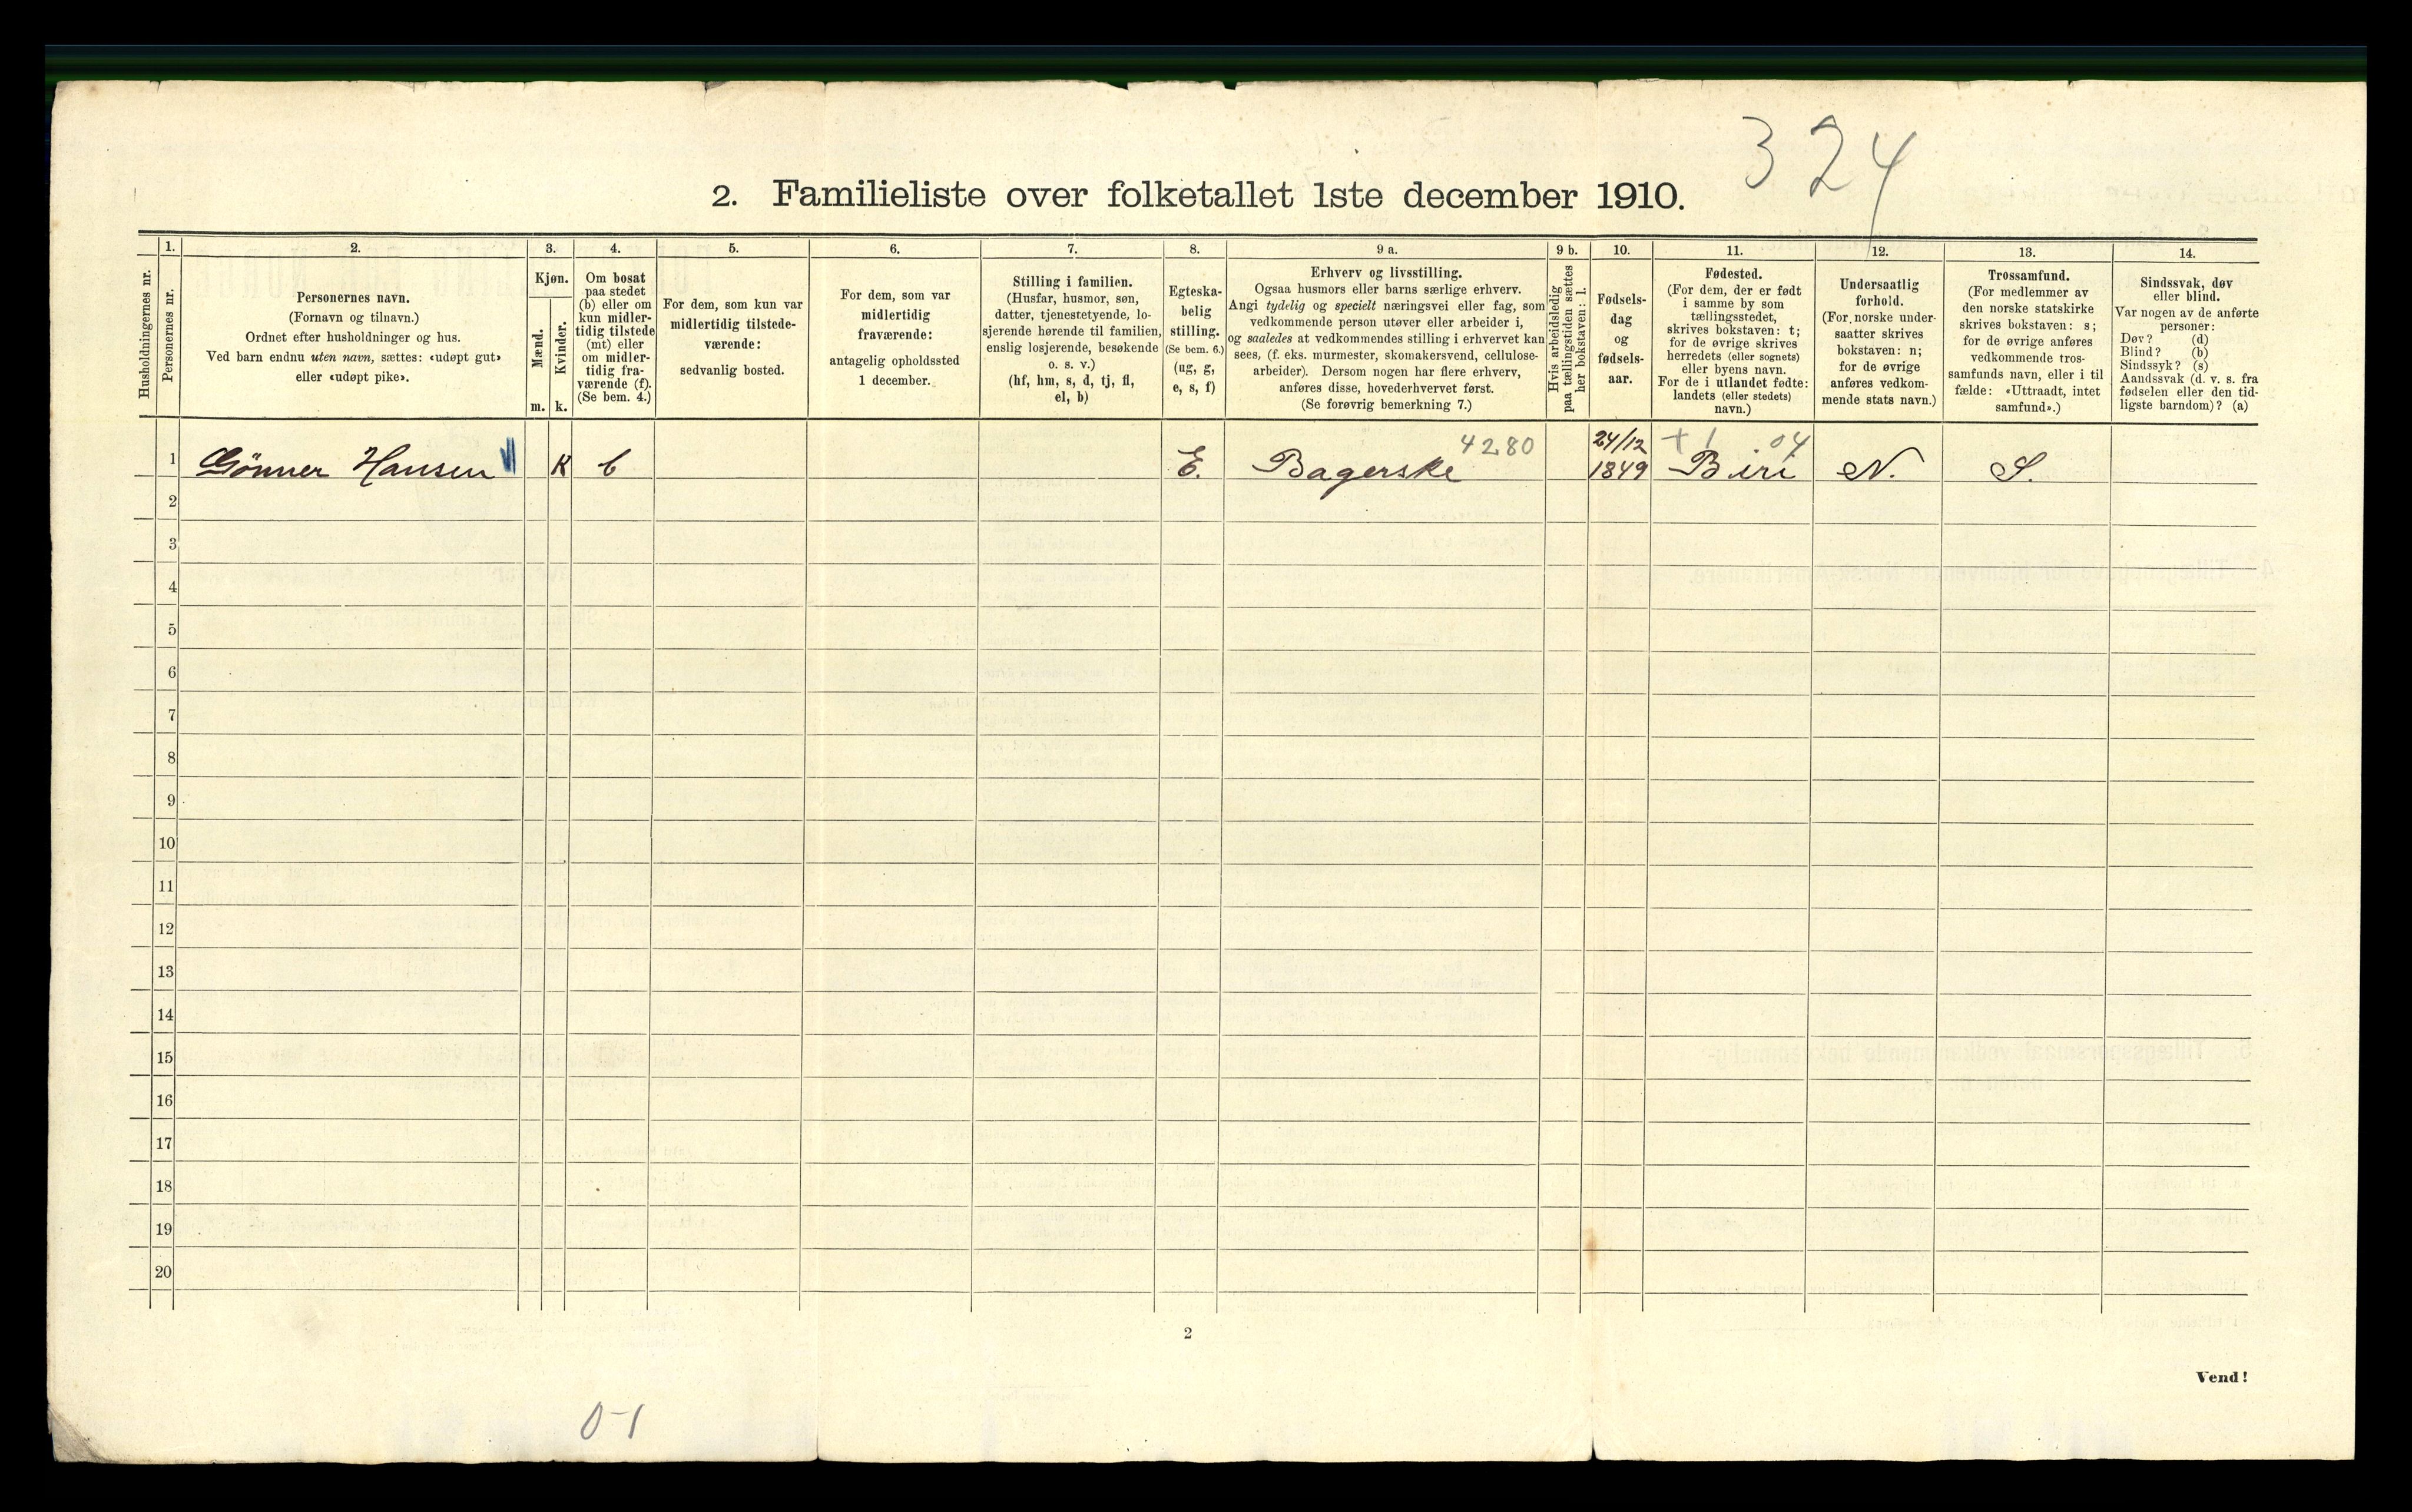 324
2. Familieliste over folketallet 1ste december 1910.
Husholdningernes nr.
1.
Personernes nr.
2.
Personernes navn.
(Fornavn og tilnavn.)
Ordnet efter husholdninger og hus.
Ved barn endnu uten navn, sættes: «udøpt gut»
eller «udøpt pike».
3.
Kjøn.
Mænd.
m.
Kvinder.
k.
4.
Om bosat
paa stedet
(b) eller om
kun midler-
tidig tilstede
(mt) eller
om midler-
tidig fra-
værende (f).
(Se bem. 4.)
5.
For dem, som kun var
midlertidig tilstede-
værende:
sedvanlig bosted.
6.
For dem, som var
midlertidig
fraværende:
antagelig opholdssted
1 december.
7.
Stilling i familien.
(Husfar, husmor, søn,
datter, tjenestetyende, lo-
sjerende hørende til familien,
enslig losjerende, besøkende
o. s. v.)
(hf, hm, s, d, tj, fl,
el, b)
8.
Egteska-
belig
stilling.
(Se bem. 6.)
(ug, g,
e, s, f)
9 a.
Erhverv og livsstilling.
Ogsaa husmors eller barns særlige erhverv.
Angi tydelig og specielt næringsvei eller fag, som
vedkommende person utøver eller arbeider i,
og saaledes at vedkommendes stilling i erhvervet kan
sees, (f. eks. murmester, skomakersvend, cellulose-
arbeider). Dersom nogen har flere erhverv,
anføres disse, hovederhvervet først.
(Se forøvrig bemerkning 7.)
9 b.
Hvis arbeidsledig
paa tællingstiden sættes
her bokstaven: l.
10.
Fødsels-
dag
og
fødsels-
aar.
11.
Fødested.
(For dem, der er født
i samme by som
tællingsstedet,
skrives bokstaven: t;
for de øvrige skrives
herredets (eller sognets)
eller byens navn.
For de i utlandet fødte:
landets (eller stedets)
navn.)
12.
Undersaatlig
forhold.
(For norske under-
saatter skrives
bokstaven: n;
for de øvrige
anføres vedkom-
mende stats navn.)
13.
Trossamfund.
(For medlemmer av
den norske statskirke
skrives bokstaven: s;
for de øvrige anføres
vedkommende tros-
samfunds navn, eller i til
fælde: «Uttraadt, intet
samfund».)
14.
Sindssvak, døv
eller blind.
Var nogen av de anførte
personer:
Døv? (d)
Blind? (b)
Sindssyk? (s)
Aandssvak (d. v. s. fra
fødselen eller den tid-
ligste barndom)? (a)
4280 24/12 + 1 04
1 Gönner Hansen K b E. Bagerske 1849 Biri N. S.
2
3
4
5
6
7
8
9
10
11
12
13
14
15
16
17
18
19
20
2
Vend!
0-1